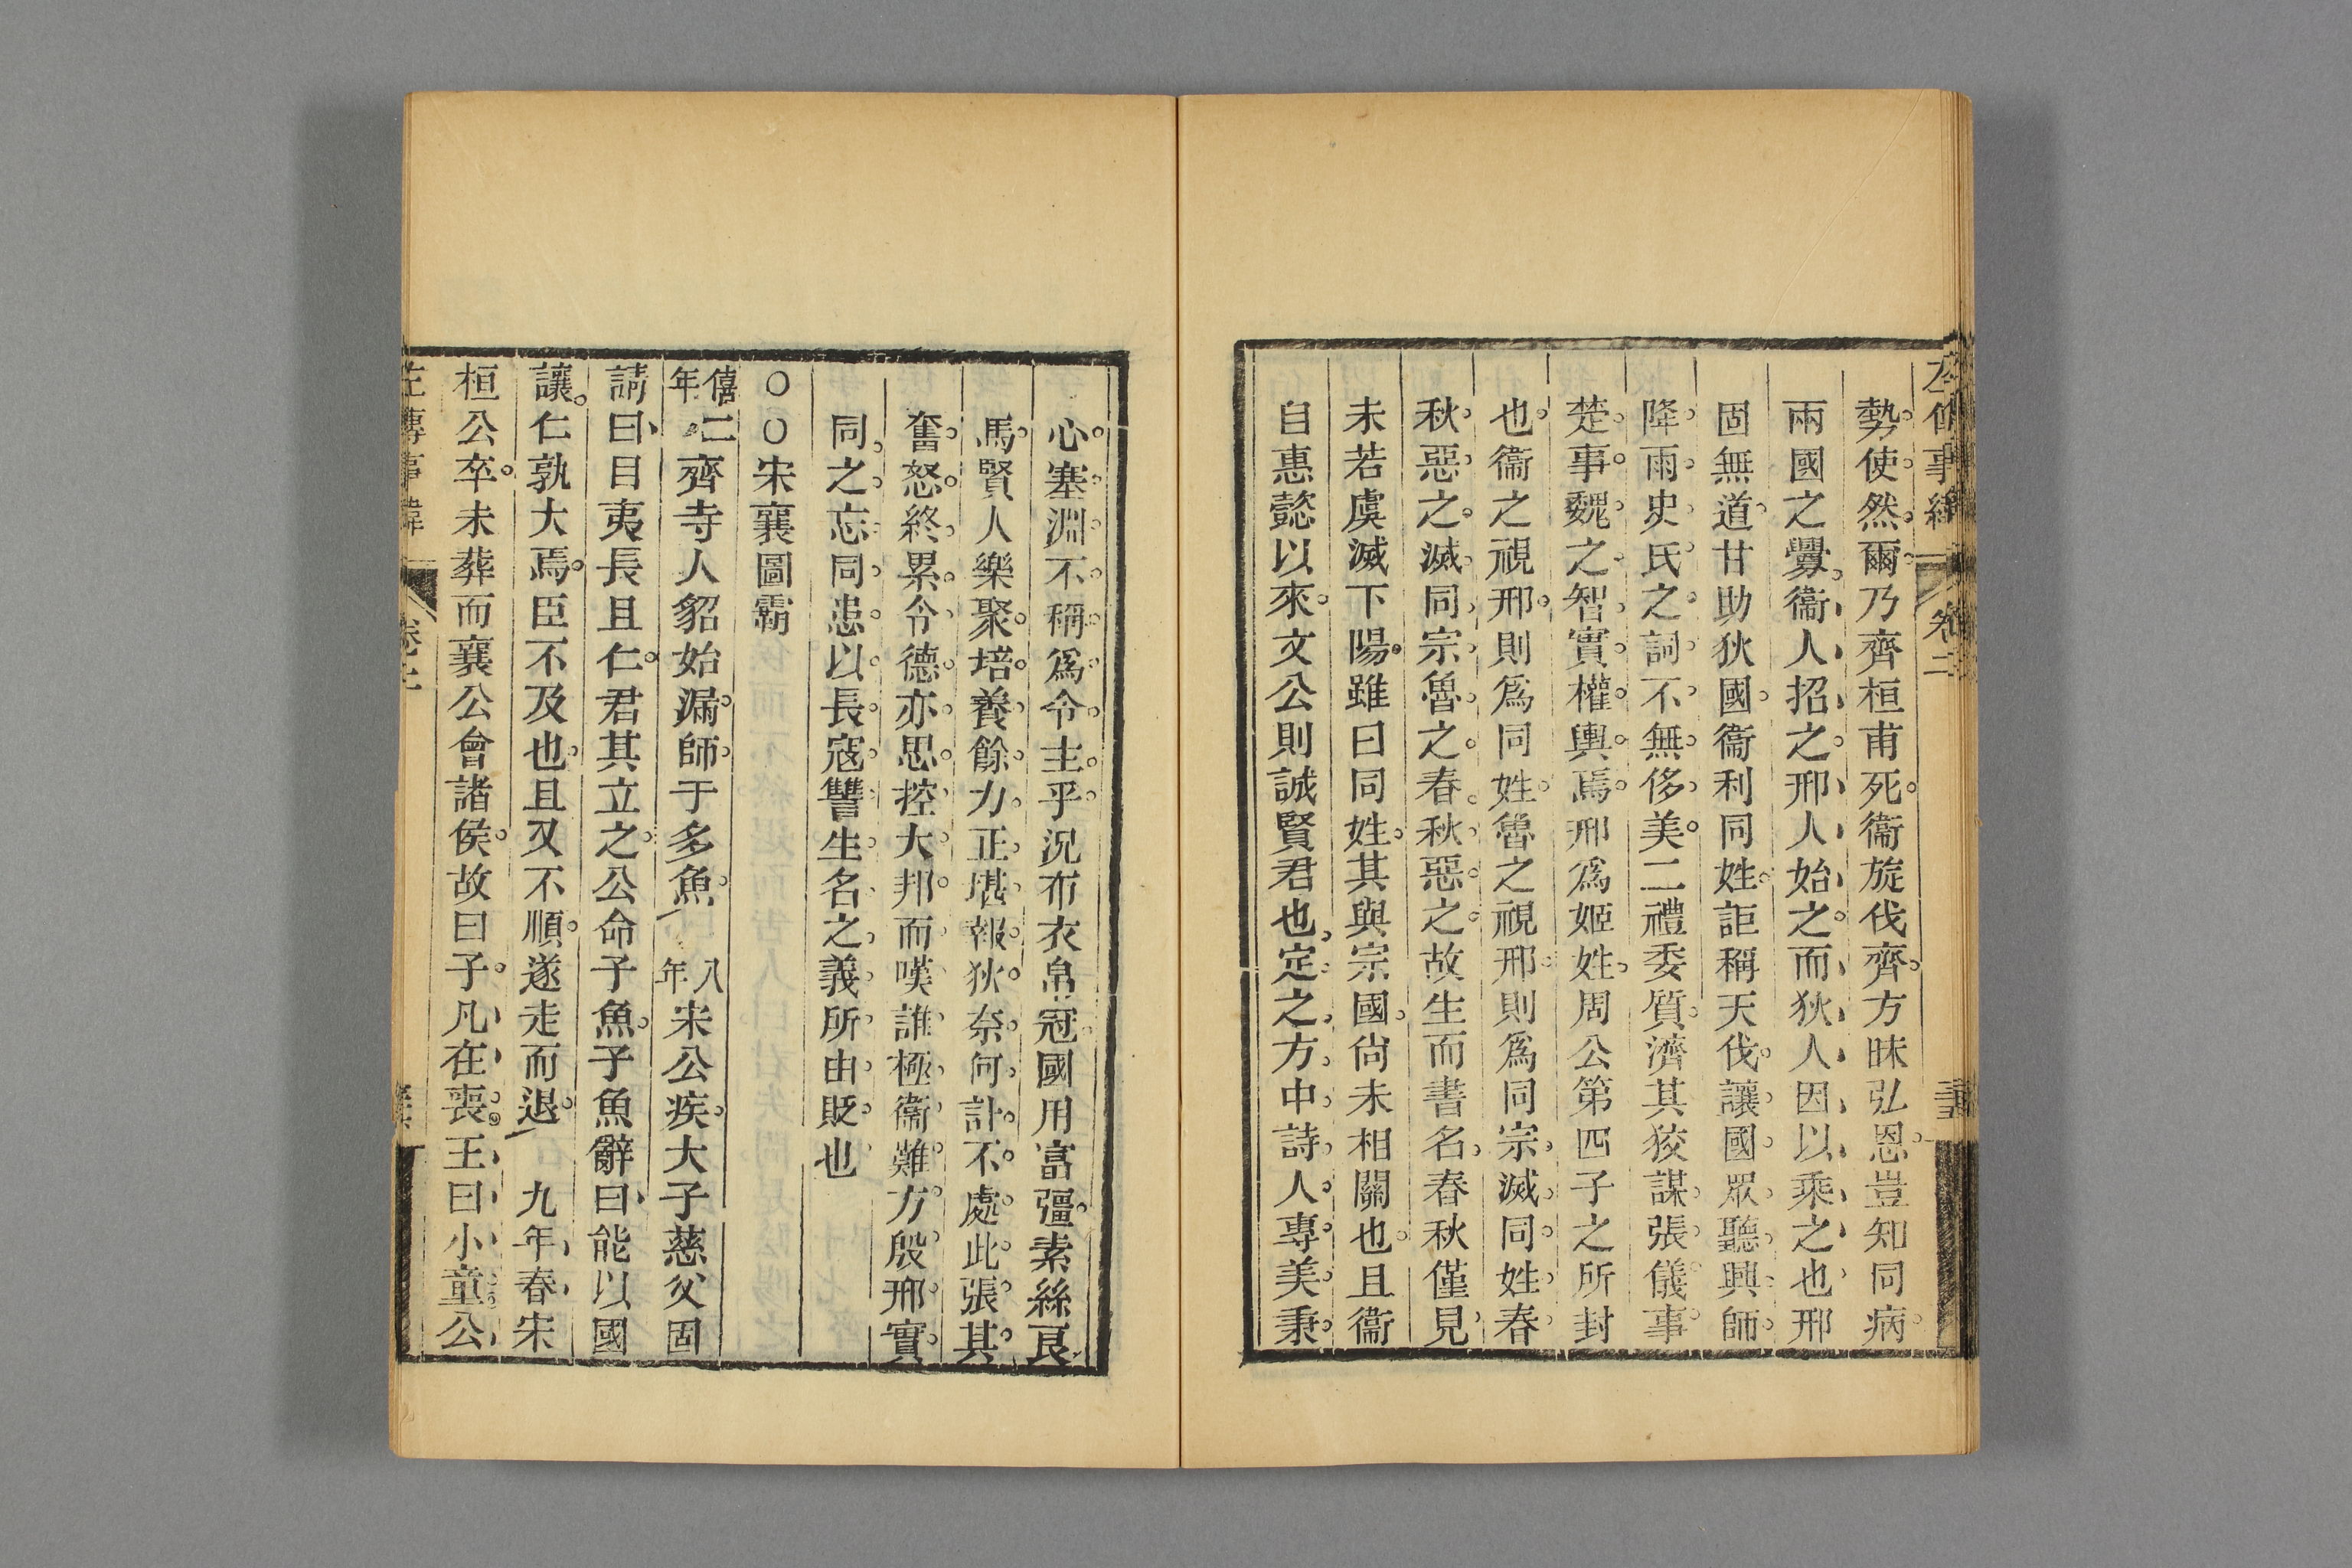 勢使然爾乃齊桓甫死衞旋伐齊方昧弘恩豈知同病
兩國之釁衞人招之邢人始之而狄人因以乘之也邢
固無道甘助狄國衞利同姓詎稱天伐讓國眾聽興師
降雨史氏之詞不無侈美二禮委質濟其狡謀張儀事
楚事魏之智實權輿焉邢爲姬姓周公第四子之所封
也衞之視邢則爲同姓魯之視邢則爲同宗滅同姓春
秋惡之滅同宗魯之春秋惡之故生而書名春秋僅見
未若虞滅下陽雖曰同姓其與宗國尙未相關也且衞
自惠懿以來文公則誠賢君也定之方中詩人專美秉
心塞淵不稱爲令主乎況布衣帛冠國用富彊素絲良
馬賢人樂聚培養餘力正堪報狄奈何計不處此張其
奮怒終累令德亦思控大邦而嘆誰極衞難方殷邢實
同之忘同恚以長寇讐生名之義所由貶也
○○宋襄圖霸
僖二年齊寺人貂始漏師于多魚 八年宋公疾大子慈父固
請曰目夷長且仁君其立之公命子魚子魚辭曰能以國
讓仁孰大焉臣不及也且又不順遂走而退 九年春宋
桓公卒未葬而襄公會諸侯故曰子凡在喪王曰小童公
左傳事緯